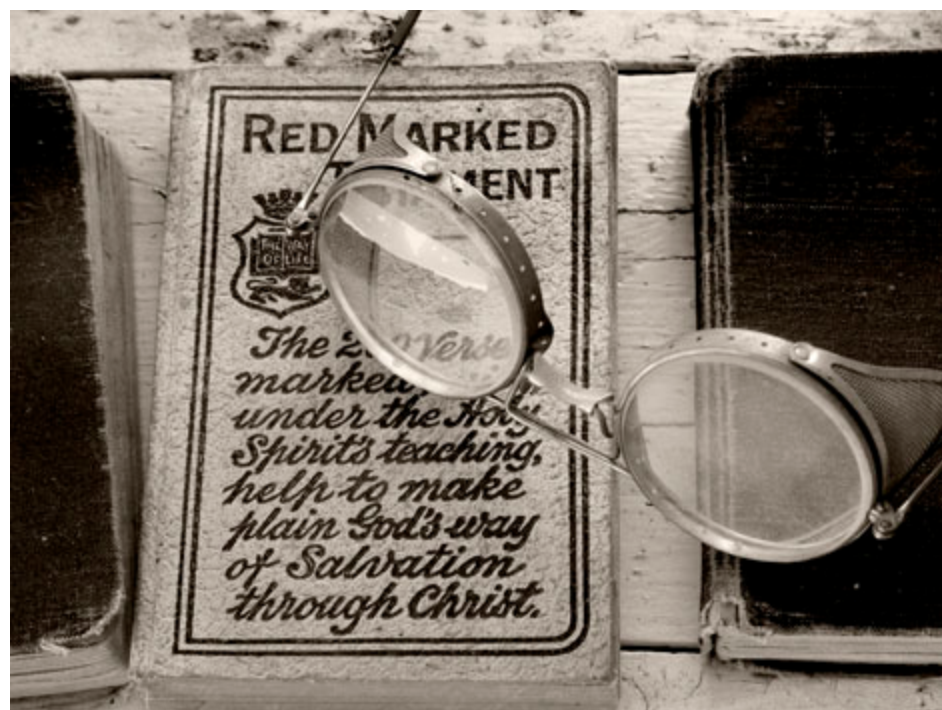 RED MARKED
MENT
THE WAY
OF LIFE
The 2 0 Verse
marked
under the Holy
Spirit's teaching,
help to make
plain God's way
of Salvation
through Christ.